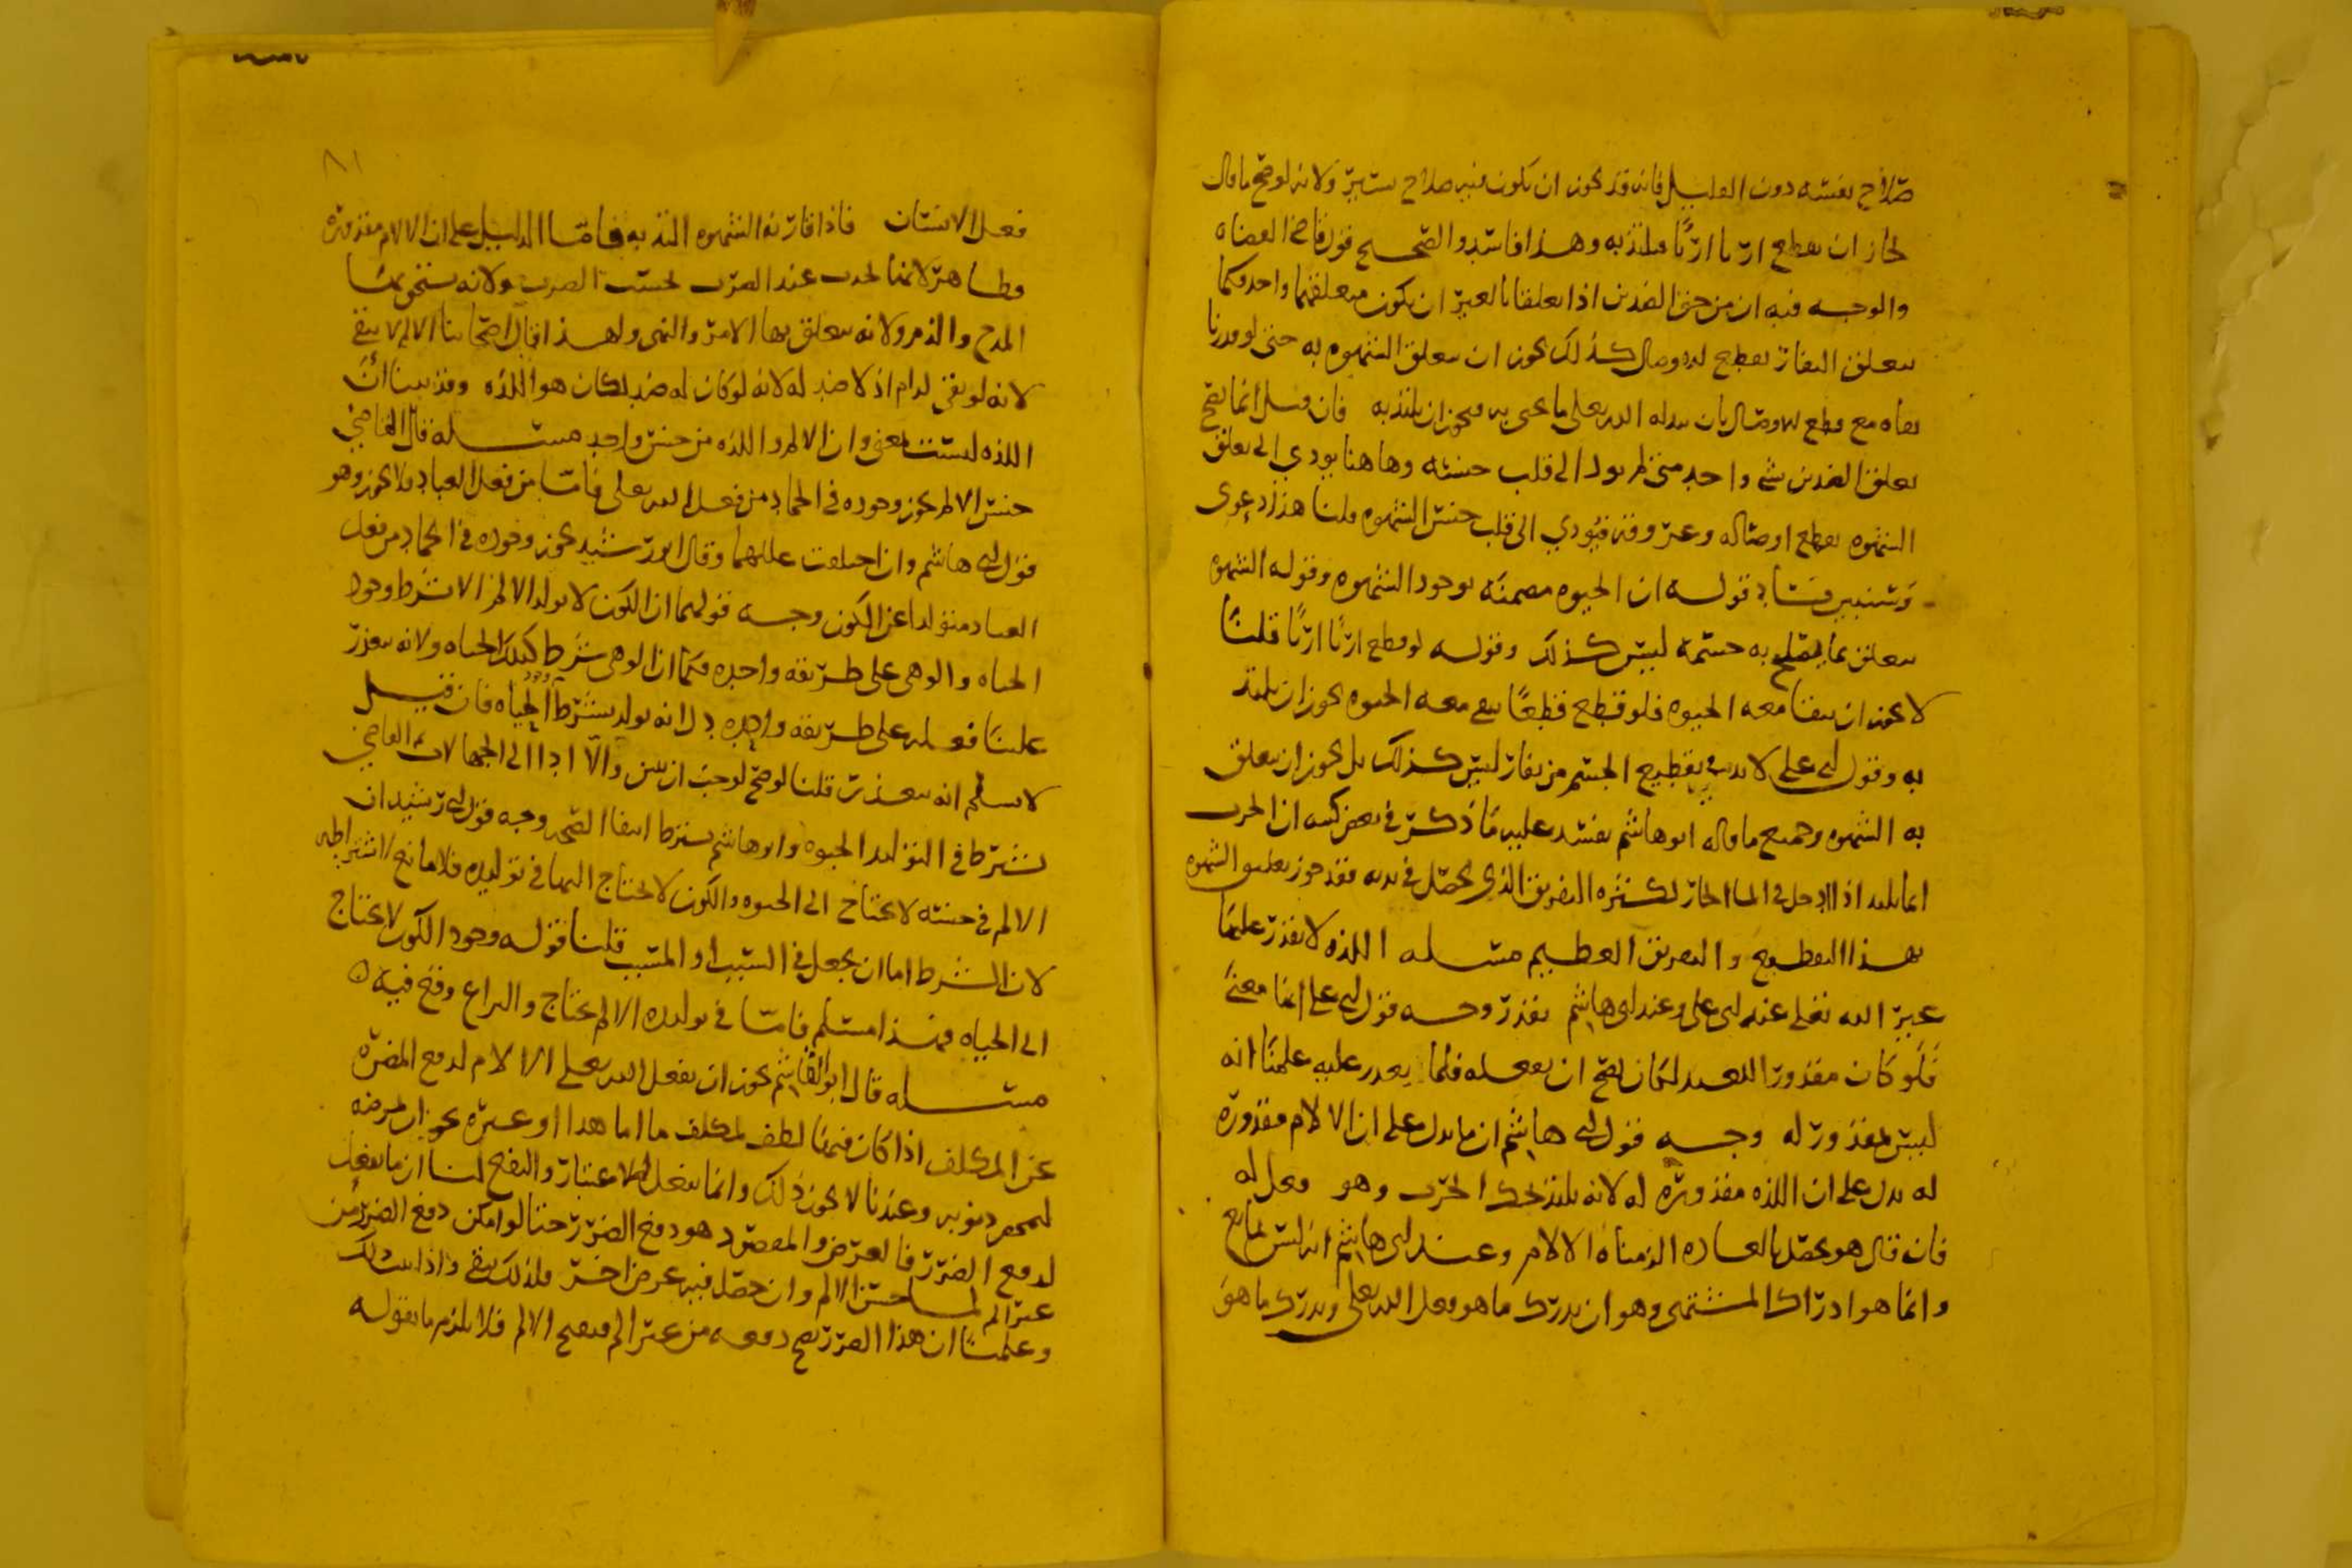 صلاح نفسه دون القليل فانه قد يجوز ان يكون فيه صلاح يسير ولانه لو صح ما قال
لجاز ان يقطع اربا اربا فيلتذ به وهذا فاسد والصحيح قول قاضي القضاه
والوجه فيه ان من حق الضدين اذا تعلقا بالغير ان يكون متعلقهما واحد فكما
يتعلق النفار بقطع اوصال كذلك يجوز ان يتعلق الشهوه به حتى لو قدرنا
بقاه مع قطع الاوصال بان الله تعالى فيجوز ان يلتذ به فان قيل انما يصح
تعلق الضدين بشي واحد متى لم يود الى قلب جنسه وهاهنا يودي الى تعلق
الشهوه بقطع اوصاله وعروقه فيودي الى قلب جنس الشهوه قلنا هذا دعوى
وسنبين فساد قوله ان الحيوه مضمنه بوجود الشهوه وقوله الشهوه
يتعلق بما يصلح به جسمه ليس كذلك وقوله لو قطع اربا اربا قلنا
لا يجوز ان يبقا معه الحيوه فلو قطع قطعا يبقى معه الحيوه يجوز ان يلتذ
به وقول ابي علي لا بد في تقطيع الجسم من نفار ليس كذلك بل يجوز ان يتعلق
به الشهوه وجميع ما قاله ابو هاشم يفسد عليه ما ذكر في بعض كتبه ان الجرب
انما يلتذ اذا ادخل في الما الحار لكثره التفريق الذي يحصل في بدنه فقد جوز تعليق الشهوه
بهذا التقطيع والتفريق العظيم مسله اللذه لا يقدر عليها
غير الله تعلى عند ابي علي وعند ابي هاشم يقدر وجه قول ابي علي انها معنى
فلو كان مقدورا للعبد لكان يصح ان يفعله فلما يعذر عليه علمنا انه
ليس بمقدور له وجه قول ابي هاشم ان ما يدل على ان الالام مقدوره
له يدل على ان اللذه مقدوره له لانه يلتذ بحك الجرب وهو فعل له
فان قال هو يحصل بالعاده الزمناه الالام وعند ابي هاشم انه ليس بمانع
وانما هو ادراك المشتهى وهو ان يدرك ما هو فعل الله تعلى ويدرك ما هو
٨١
فعل الانسان فاذا قارنه الشهوه التذ به فاما الدليل على ان الالام مقدوره
فظاهر لانها تحدث عند الضرب بحسب الضرب ولانه يستحق بها
المدح والذم ولانه يتعلق بها الامر والنهي ولهذا قال اصحابنا الالم لا يبقى
لانه لو بقى لدام اذ لا ضد له لانه لو كان له ضد لكان هو اللذه وقد بينا ان
اللذه ليست بمعنى وان الالم واللذه من جنس واحد مسله قال القاضي
جنس الالم يجوز وجوده في الجماد من فعل الله تعلى فاما من فعل العباد فلا يجوز وهو
قول ابي هاشم وان اختلفت عللهما وقال ابو رشيد يجوز وجوده في الجماد من فعل
العباد متولدا عن الكون وجه قولهما ان الكون لا يولد الالم الا بشرط وجود
الحياه والوهي على طريقه واحده فكما ان الوهي شرط كذلك الحياه ولانه يتعذر
علينا فعله على طريقه واحده دل انه يولد بشرط وجود الحياه فان قيل
لا نسلم انه يتعذر قلنا لو صح لوجب ان يبين والا ادا الى الجهالات ثم القاضي
يشترط في التوليد الحيوه وابو هاشم يشترط انتفا الصحه وجه قول ابي رشيد ان
الالم في جنسه لا يحتاج الى الحيوه والكون لا يحتاج اليها في توليده فلا مانع لاشتراطه
لان الشرط اما ان يجعل في السبب او المسبب قلنا قوله وجود الكون لا يحتاج
الى الحياه فهذا مسلم فاما في توليده الالم يحتاج والنزاع وقع فيه ه
مسله قال ابو القاسم يجوز ان يفعل الله تعلى الالام لدفع المضره
عن المكلف اذا كان فيها لطف لمكلف ما اما هذا او غيره نحو ان يمرضه
ليمحو ذنوبه وعندنا لا يجوز ذلك وانما يفعل للاعتبار والنفع لنا ان ما يفعل
لدفع الضرر فالغرض والمقصود هو دفع الضرر حتا لو امكن دفع الضرر من
غير الم لما حسن الالم وان حصل فيه غرض اخر فلذلك يبقى واذا ثبت ذلك
وعلمنا ان هذا الضرر يصح دفعه من غير الم فيقبح الالم فلا يلزم ما يقوله